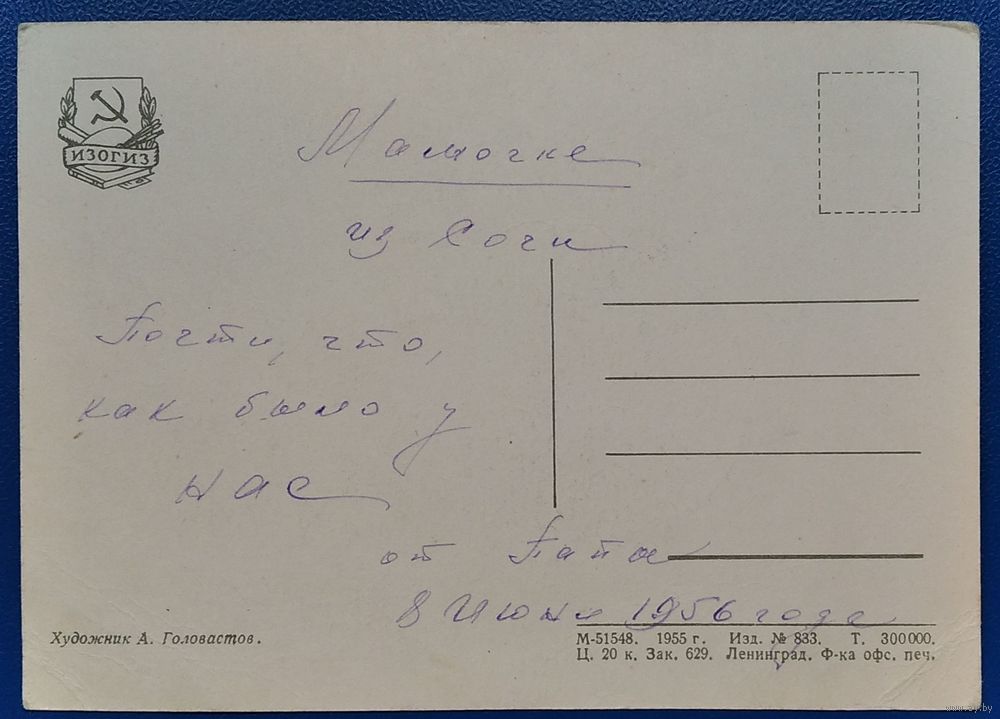 ИЗОГИЗ
Мамочке
из Сочи
Почти, что,
как было у
нас
от Папы
8 Июня 1956 года
Художник А. Головастов.
М-51548. 1955 г. Изд. № 833. Т. 300000.
Ц. 20 к. Зак. 629. Ленинград. Ф-ка офс. печ.